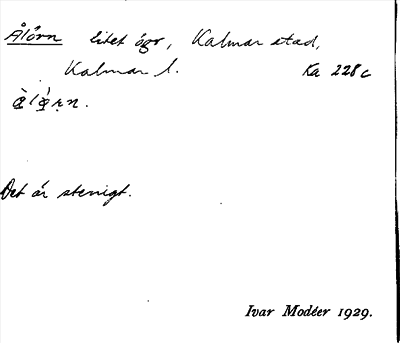 Ålörn litet ögr, Kalmar stad,
Kalmar l. Ka 228c
Det är stenigt.
Ivar Modéer 1929.